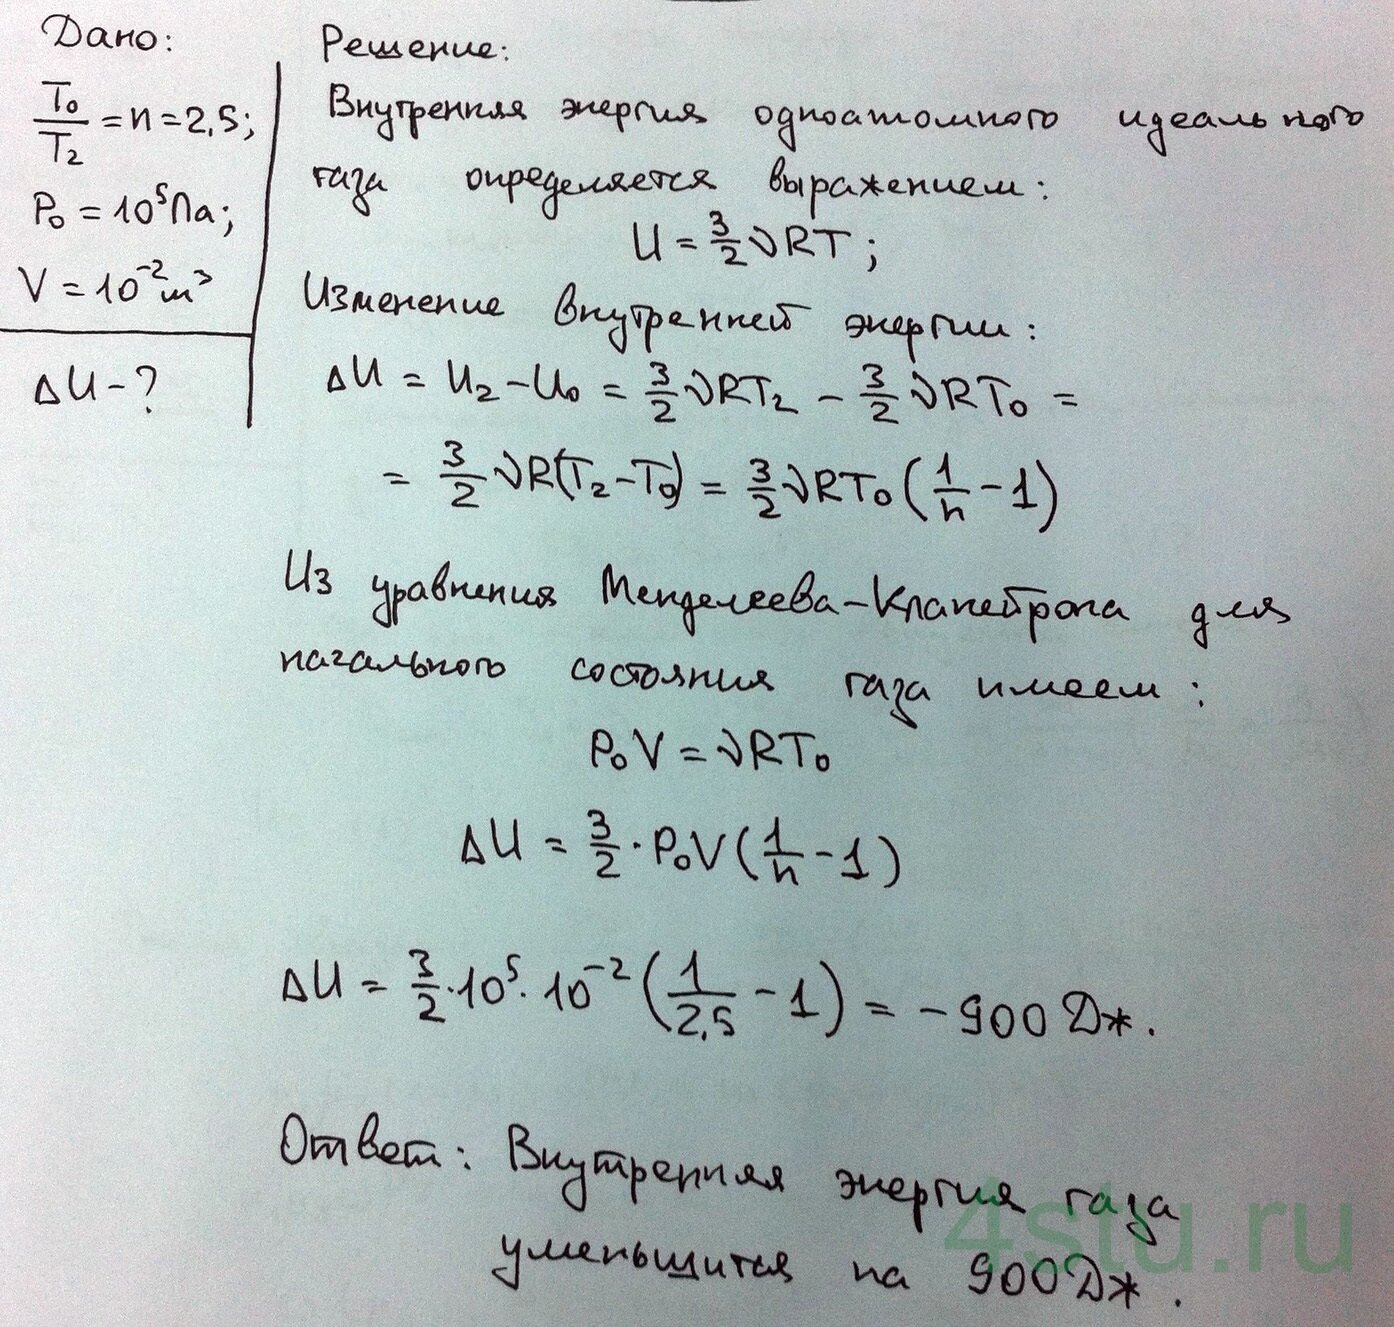 Дано:
T₀/T₂ = n = 2,5;
P₀ = 10⁵ Па;
V = 10⁻² м³
ΔU - ?
Решение:
Внутренняя энергия одноатомного идеального
газа определяется выражением:
U = 3/2 νRT;
Изменение внутренней энергии:
ΔU = U₂ - U₀ = 3/2 νRT₂ - 3/2 νRT₀ =
= 3/2 νR(T₂ - T₀) = 3/2 νRT₀ (1/n - 1)
Из уравнения Менделеева-Клапейрона для
начального состояния газа имеем:
P₀V = νRT₀
ΔU = 3/2 · P₀V (1/n - 1)
ΔU = 3/2 · 10⁵ · 10⁻² (1/2,5 - 1) = - 900 Дж.
Ответ: Внутренняя энергия газа
уменьшится на 900 Дж.
4stu.ru